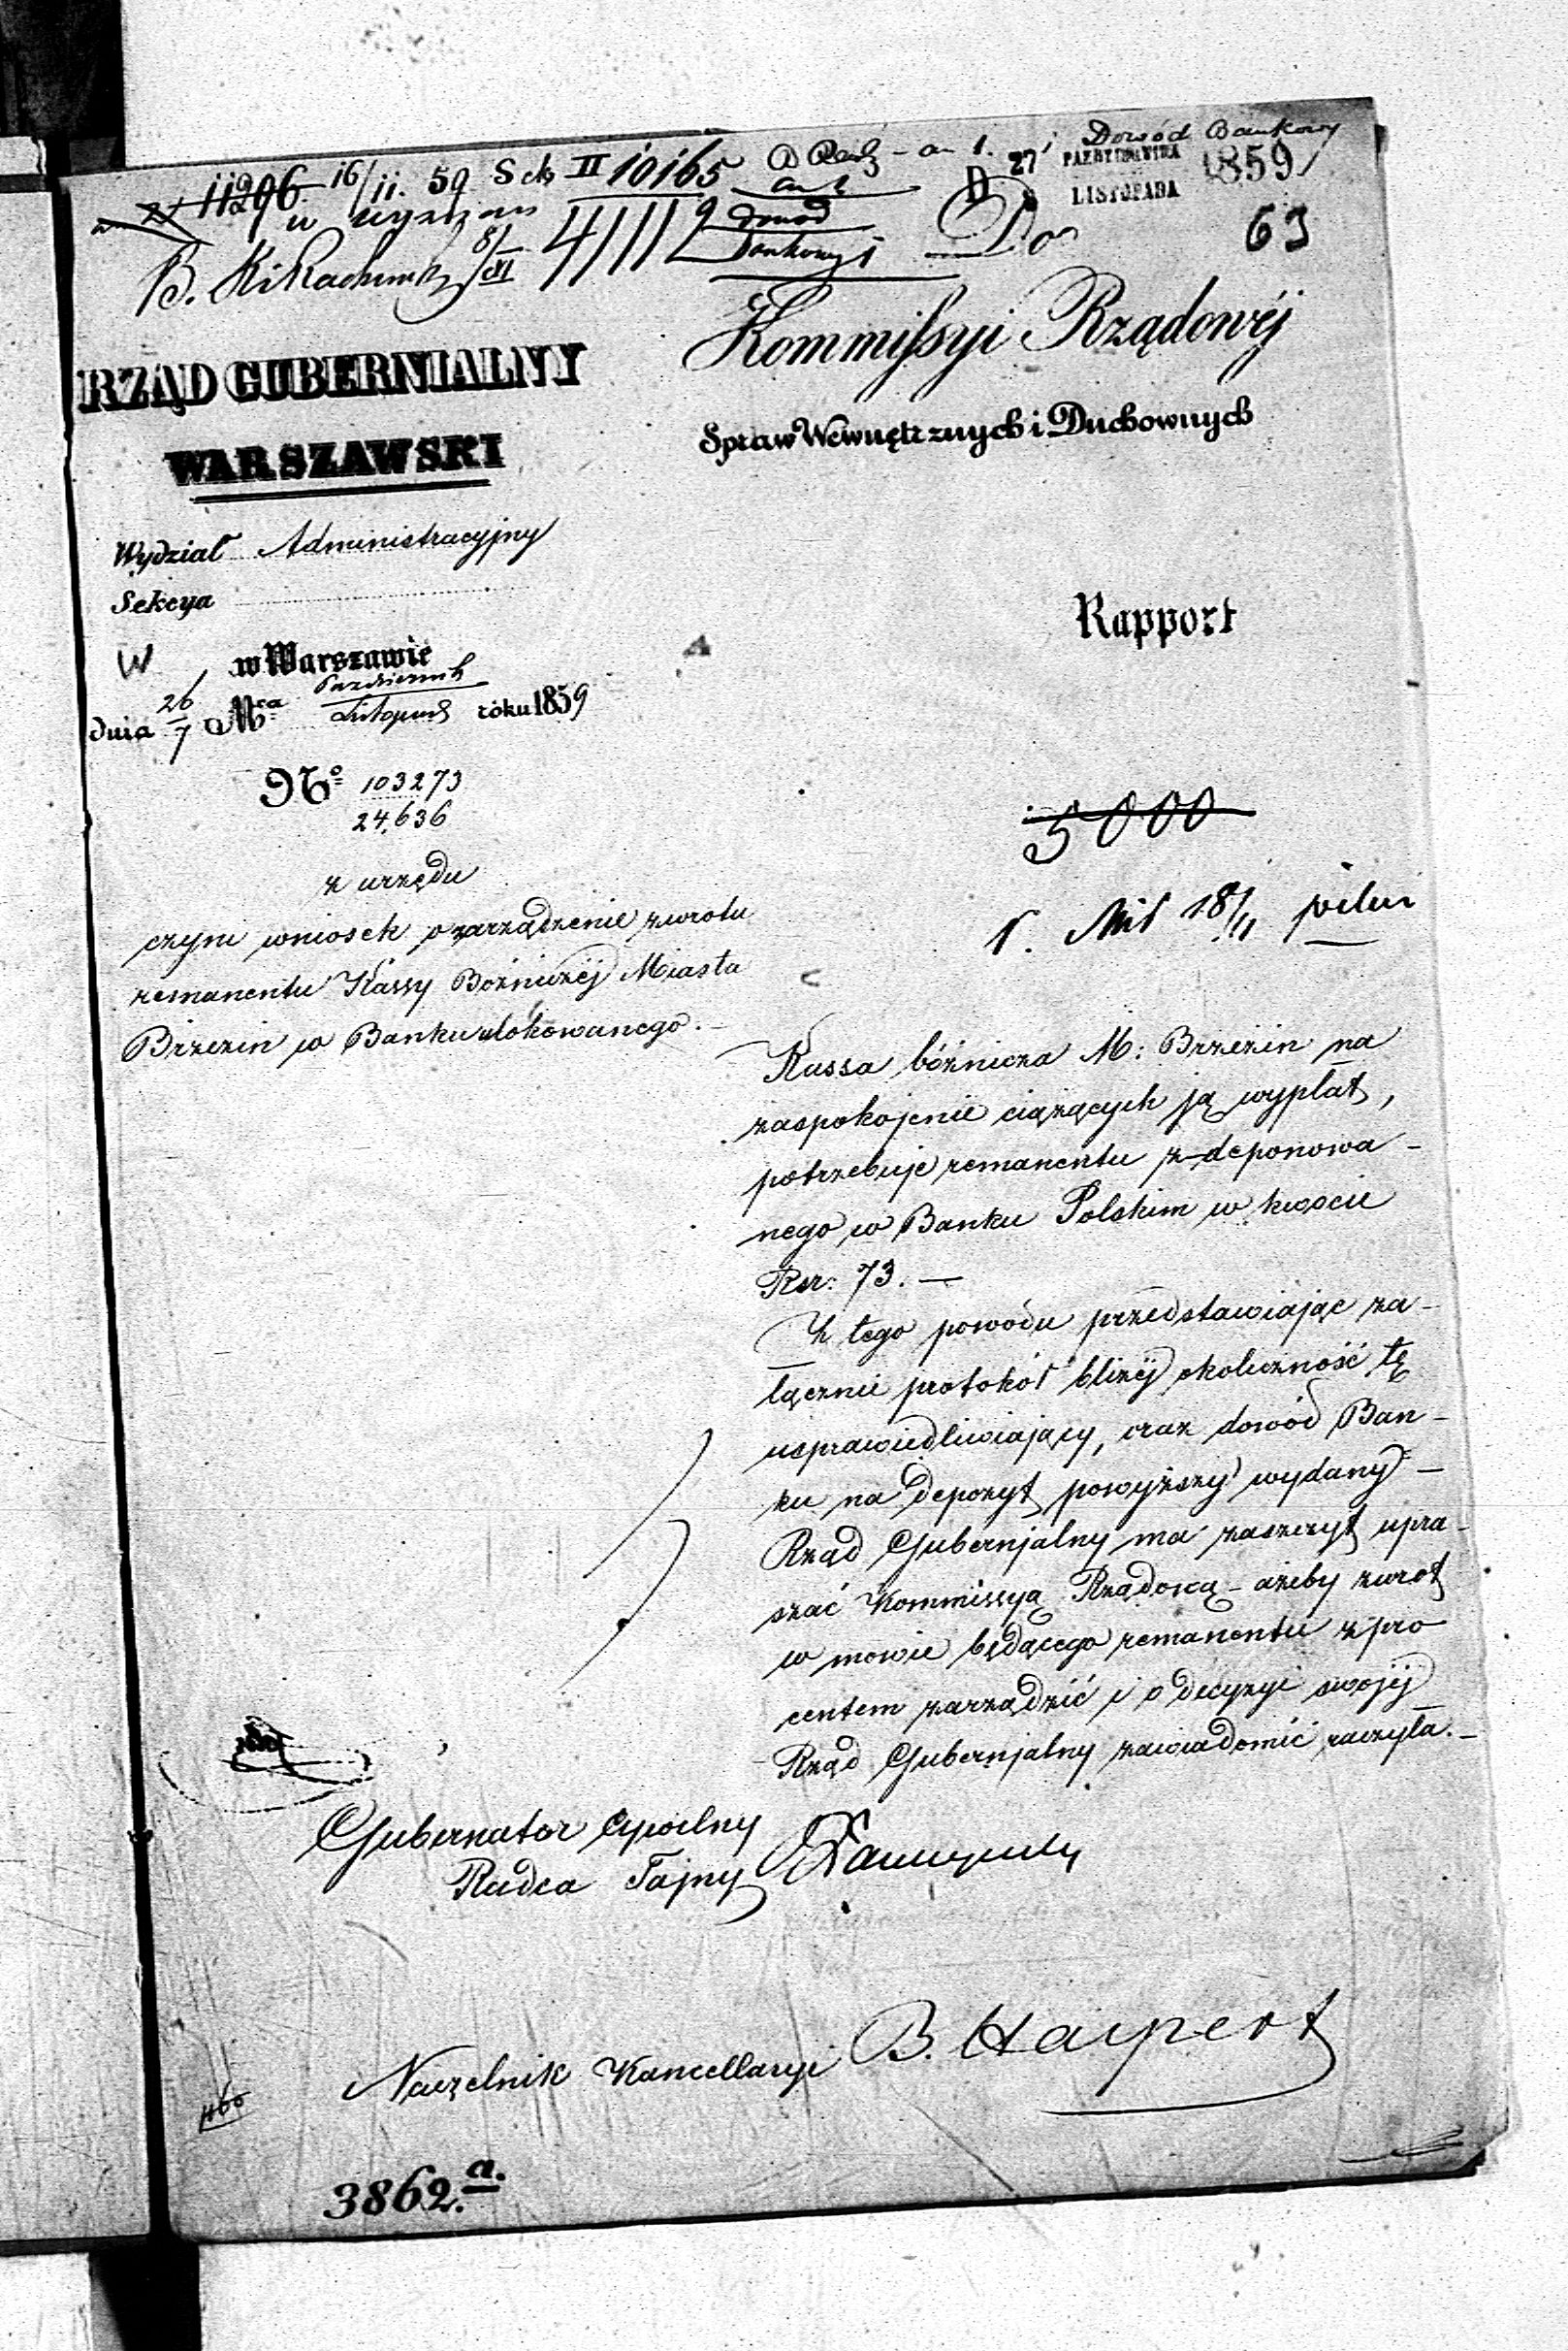 11296 16/11. 59 Sek II 10165
Dowód Bankowy
27 PAZDZIERNIKA 1859
D 8 LISTOPADA
8/XI 41112 dowód
Do
63
Kommissyi Rządowéj
Spraw Wewnętrznych i Duchownych
RZĄD GUBERNIALNY
WARSZAWSKI
Wydział Administracyjny
Sekcya
w Warszawie
dnia 26/7 Mca Październik/Listopad roku 1859
No 103273
24,636
z urzędu
czyni wniosek o zarządzenie zwrotu
remanentu Kassy Bóżniczéj Miasta
Brzezin w Banku ulokowanego.
Rapport
5000
18/11 pilne
Kassa bóżnicza M: Brzezin na
zaspokojenie ciążących ją wypłat,
potrzebuje remanentu z-deponowa-
nego w Banku Polskim w kwocie
Rsr: 73. —
Z tego powodu przedstawiając za-
łącznie protokół bliżéj okoliczność tę
usprawiedliwiający, oraz dowód Ban-
ku na depozyt powyższy wydany —
Rząd Gubernjalny ma zaszczyt upra-
szać Kommissyą Rządową - ażeby zwrot
w mowie będącego remanentu z pro
centem zarządzić i o decyzyi swojéj
Rząd Gubernjalny zawiadomić raczyła. —
Gubernator Cywilny
Radca Tajny
Naczelnik Kancellaryi B. Halpert
460
3862.a.